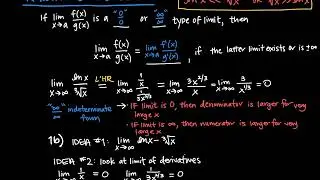 If lim x→a f(x)/g(x) is a "0/0" or "∞/∞" type of limit, then
lim x→a f(x)/g(x) = lim x→a f'(x)/g'(x), if the latter limit exists or is ±∞
lim x→∞ ln x/∛x L'HR = lim x→∞ (1/x)/(1/3x^2/3) = lim x→∞ 3x^2/3/x = lim x→∞ 3/x^1/3 = 0
"∞/∞" indeterminate form
→ If limit is 0, then denominator is larger for very large x
• If limit is ∞, then numerator is larger for very large x
1b) IDEA #1: lim x→∞ ln x - ∛x
IDEA #2: look at limit of derivatives
lim x→∞ 1/x = 0 lim x→∞ 1/3x^2/3 = 0